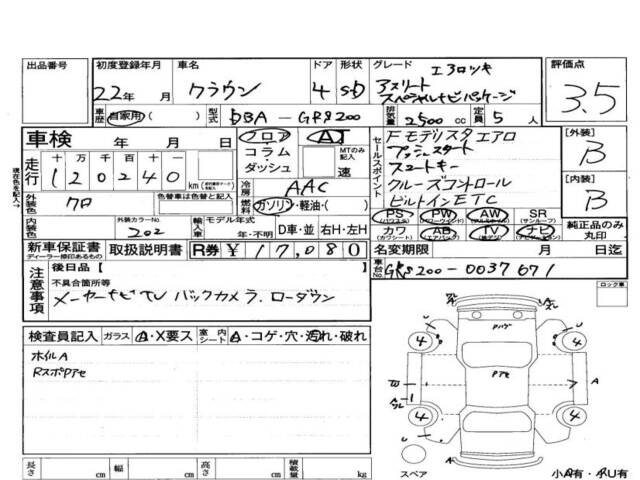 出品番号 初度登録年月 車名 ドア 形状 グレード エアロツキ 評価点
22年 月 クラウン 4 SD アスリート
スペシャルナビパッケージ 3.5
車歴 自家用( ) 型式 DBA-GRS200 排気量 2500cc 定員 5人
車検 年 月 日 フロア AT Fモデリスタエアロ [外装]
走行 十万千百十一 コラム・ MTのみ記入 プッシュスタート B
120240 km ダッシュ 速 セールスポイント スマートキー
現在色を記入→ 冷房 AAC クルーズコントロール [内装]
外装色 クロ 色替車は色替と記入 燃料 ガソリン・軽油・( ) ビルトインETC B
内装色 外装カラーNo. 202 輸入車 モデル年式 年・不明 D車・並 右H・左H
PS PW AW SR
(パワステ) (パワーウインド) (アルミホイル) (サンルーフ) 純正品のみ丸印
カワ AB TV ナビ
(カワシート) (エアバッグ)
新車保証書 取扱説明書 R券 ¥17,080 名変期限 月 日迄
ディーラー捺印あるもの
注意事項 後日品【 】 車台No. GRS200-0037671
不具合箇所等
メーカーナビTV バックカメラ. ローダウン ロック車
検査員記入 ガラス A・X要ス 室内シート A・コゲ・穴・汚れ・破れ
ホイルA
RスポPアセ
U 4 Pハゲ 4 U
W Pアセ A
4 4
長さ cm 幅 cm 高さ cm 積載量 kg
スペア 小A有・小U有